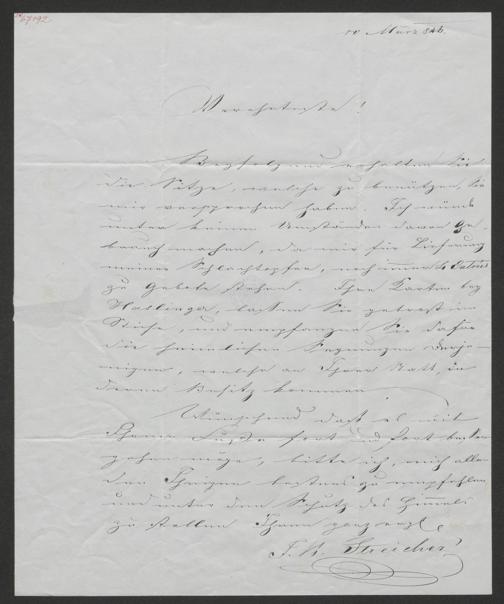 10 März 846.
Verehrteste!
Beyfolgend erhalten Sie
die Sitze, welche zu benützen, Sie
mir versprochen haben. Ich würde
unter keinen Umständen davon Ge-
brauch machen, da mir für Lieferung
meiner Schlachtopfer, noch immer
zu Gebote stehen. Ihre Karten bey
Haslinger, lassen Sie getrost im
Stiche, und empfangen Sie dafür
die heimlichen Segnungen derje-
nigen, welche an Ihrer Statt, in
deren Besitz kommen
Wünschend daß es mit
Ihrem fort und fort
gehen möge, bitte ich, mich allen
den Ihrigen bestens zu empfehlen
und unter den Schutz des Himmels
zu stellen Ihren ganz
J. B. Streicher